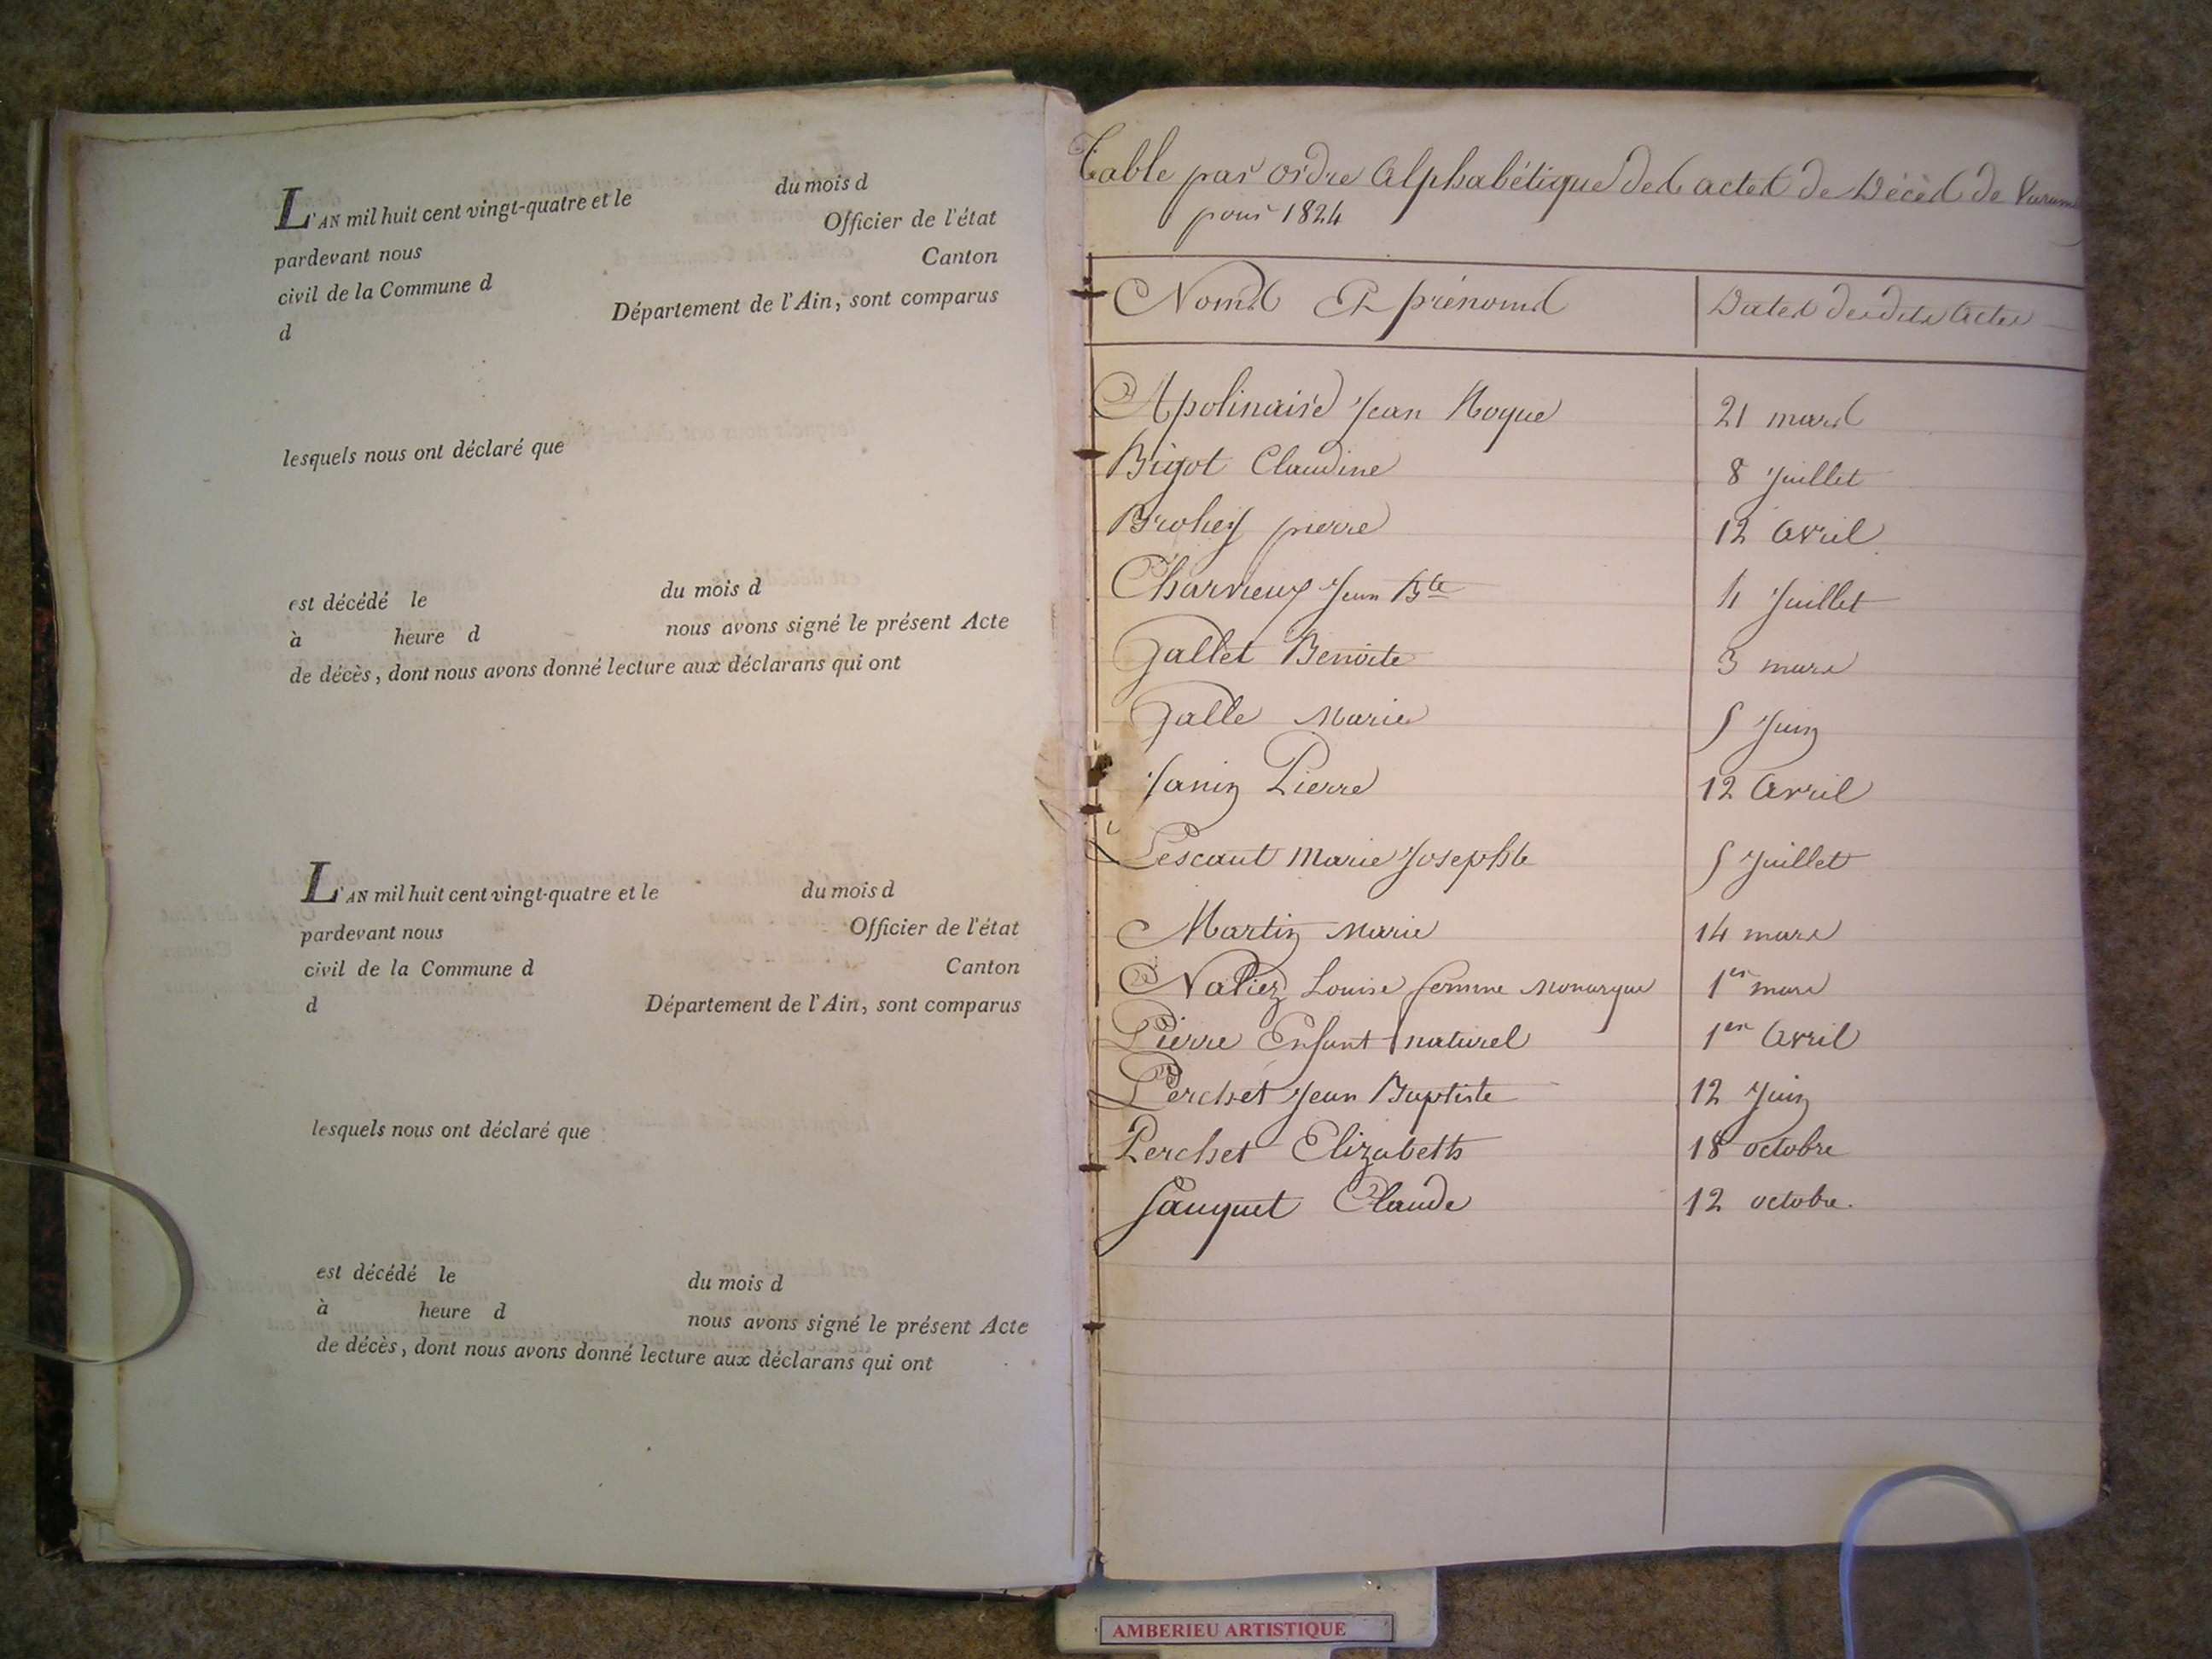 L'AN mil huit cent vingt-quatre et le du mois d
pardevant nous Officier de l'état
civil de la Commune d Canton
d Département de l'Ain, sont comparus
lesquels nous ont déclaré que
est décédé le du mois d
à heure d nous avons signé le présent Acte
de décès, dont nous avons donné lecture aux déclarans qui ont
L'AN mil huit cent vingt-quatre et le du mois d
pardevant nous Officier de l'état
civil de la Commune d Canton
d Département de l'Ain, sont comparus
lesquels nous ont déclaré que
est décédé le du mois d
à heure d nous avons signé le présent Acte
de décès, dont nous avons donné lecture aux déclarans qui ont
Table par ordre Alphabétique des actes de Décès de
pour 1824
Noms Et prénoms Dates desdits Actes
Apolinaire Jean Roque 21 mars
Bigot Claudine 8 Juillet
pierre 12 Avril
Charvieux Jean Bte 4 Juillet
Gallet Benoite 3 mars
Galle Marie 5 Juin
Janin Pierre 12 Avril
Lescaut Marie Josephte 5 Juillet
Martin Marie 14 mars
Louise femme Monarque 1er mars
Pierre Enfant naturel 1er Avril
Perchet Jean Baptiste 12 Juin
Perchet Elizabeth 18 octobre
Janquet Claude 12 octobre.
AMBERIEU ARTISTIQUE